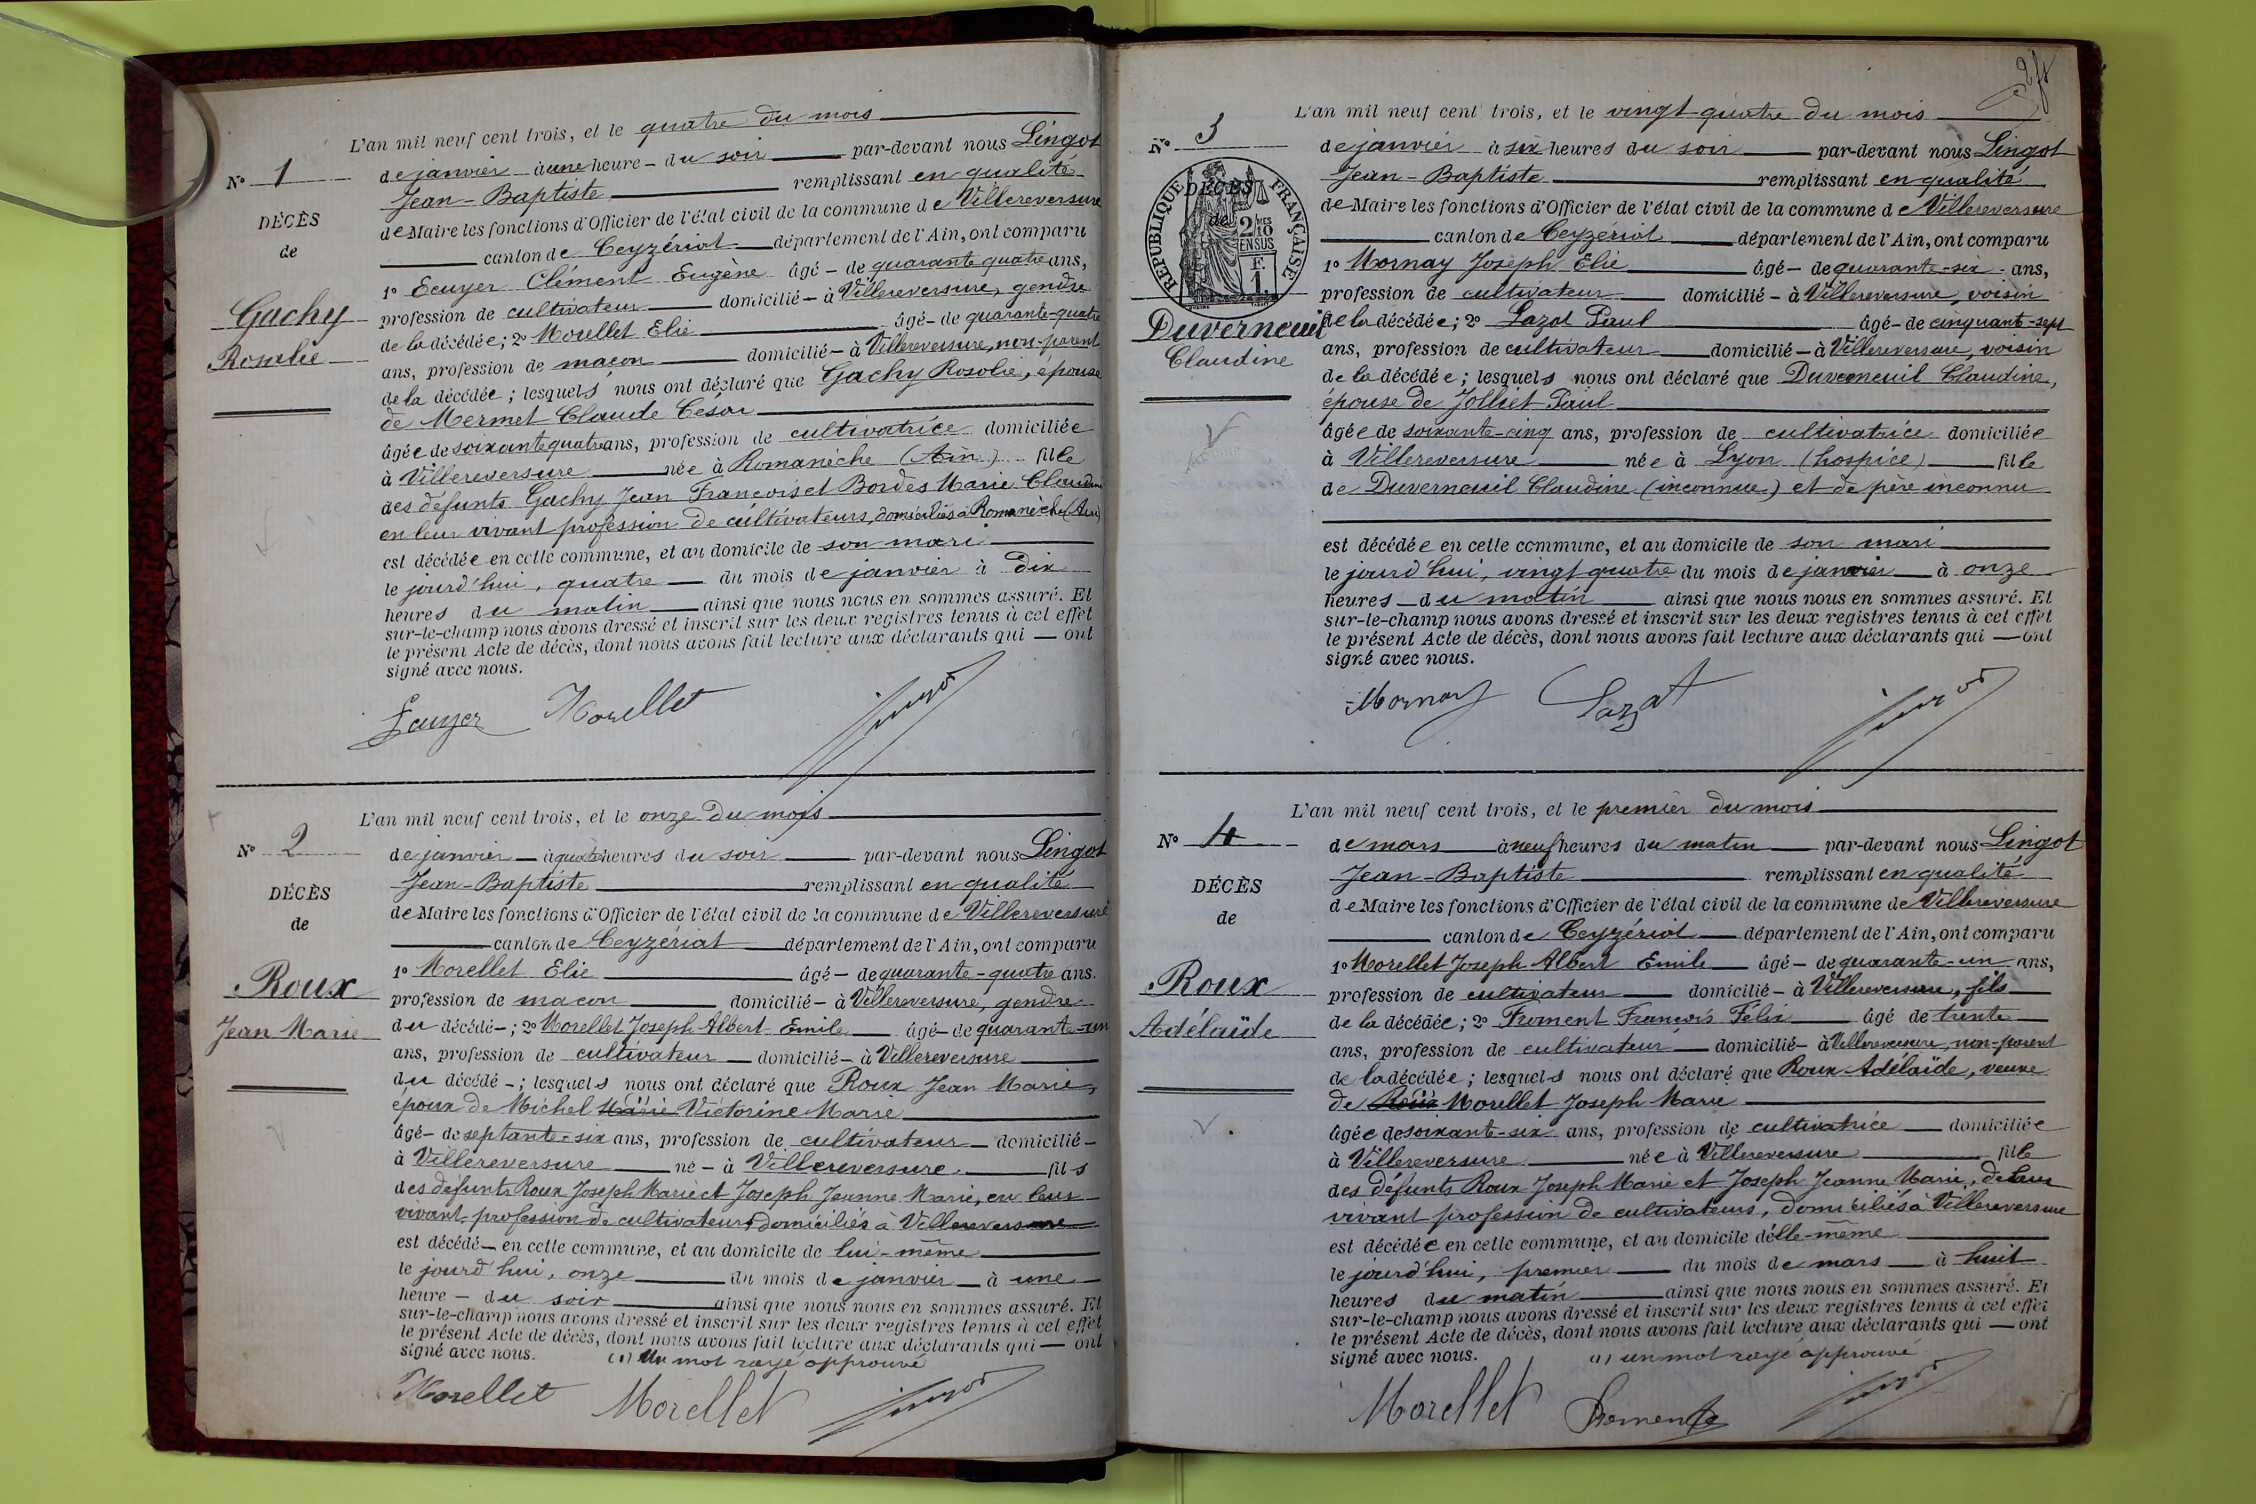 L'an mil neuf cent trois, et le quatre du mois
de janvier à une heure du soir par-devant nous Lingot
Jean-Baptiste remplissant en qualité
de Maire les fonctions d'Officier de l'état civil de la commune de Villereversure
canton de Ceyzériat département de l'Ain, ont comparu
1º Ecuyer Clément Eugène âgé - de quarante quatre ans,
profession de cultivateur domicilié - à Villereversure, gendre
de la décédée; 2º Morellet Elie âgé - de quarante-quatre
ans, profession de maçon domicilié - à Villereversure, non-parent
de la décédée; lesquels nous ont déclaré que Gachy Rosalie, épouse
de Mermet Claude César
âgée de soixante quatre ans, profession de cultivatrice domiciliée
à Villereversure née à Romanèche (Ain) fille
des défunts Gachy Jean François et Bordes Marie Claudine
en leur vivant profession de cultivateurs, domiciliés à Romanèche (Ain)
est décédée en cette commune, et au domicile de son mari
le jourd'hui, quatre du mois de janvier à dix
heures du matin ainsi que nous nous en sommes assuré. Et
sur-le-champ nous avons dressé et inscrit sur les deux registres tenus à cet effet
le présent Acte de décès, dont nous avons fait lecture aux déclarants qui - ont
signé avec nous.
Nº 1
DÉCÈS
de
Gachy
Rosalie
Ecuyer Morellet Lingot
L'an mil neuf cent trois, et le onze du mois
de janvier - à quatre heures du soir par-devant nous Lingot
Jean-Baptiste remplissant en qualité
de Maire les fonctions d'Officier de l'état civil de la commune de Villereversure
canton de Ceyzériat département de l'Ain, ont comparu
1º Morellet Elie âgé - de quarante-quatre ans.
profession de maçon domicilié - à Villereversure, gendre
du décédé -; 2º Morellet Joseph Albert Emile âgé - de quarante-un
ans, profession de cultivateur domicilié - à Villereversure
du décédé -; lesquels nous ont déclaré que Roux Jean Marie,
époux de Michel Marie Victorine Marie
âgé - de septante-six ans, profession de cultivateur domicilié -
à Villereversure né - à Villereversure fils
des défunts Roux Joseph Marie et Joseph Jeanne Marie, en leur
vivant profession de cultivateurs domiciliés à Villereversure
est décédé - en cette commune, et au domicile de lui-même
le jourd'hui, onze du mois de janvier à une
heure - du soir ainsi que nous nous en sommes assuré. Et
sur-le-champ nous avons dressé et inscrit sur les deux registres tenus à cet effet
le présent Acte de décès, dont nous avons fait lecture aux déclarants qui - ont
signé avec nous. (1) Un mot rayé approuvé
Nº 2
DÉCÈS
de
Roux
Jean Marie
Morellet Morellet Lingot
L'an mil neuf cent trois, et le vingt-quatre du mois
de janvier à six heures du soir par-devant nous Lingot
Jean-Baptiste remplissant en qualité
de Maire les fonctions d'Officier de l'état civil de la commune de Villereversure
canton de Ceyzériat département de l'Ain, ont comparu
1º Mornay Joseph Elie âgé - de quarante-six - ans,
profession de cultivateur domicilié - à Villereversure, voisin
de la décédée; 2º Lazat Paul âgé - de cinquant-sept
ans, profession de cultivateur domicilié - à Villereversure, voisin
de la décédée; lesquels nous ont déclaré que Duverneuil Claudine,
épouse de Jolliet Paul
âgée de soixante-cinq ans, profession de cultivatrice domiciliée
à Villereversure née à Lyon (hospice) fille
de Duverneuil Claudine (inconnue) et de père inconnu
est décédée en cette commune, et au domicile de son mari
le jourd'hui, vingt quatre du mois de janvier à onze
heures du matin ainsi que nous nous en sommes assuré. Et
sur-le-champ nous avons dressé et inscrit sur les deux registres tenus à cet effet
le présent Acte de décès, dont nous avons fait lecture aux déclarants qui - ont
signé avec nous.
Nº 3
RÉPUBLIQUE FRANÇAISE
2/10 MES EN SUS
F.
1.
DÉCÈS
de
Duverneuil
Claudine
Mornay Lazat Lingot
L'an mil neuf cent trois, et le premier du mois
de mars à neuf heures du matin par-devant nous Lingot
Jean-Baptiste remplissant en qualité
de Maire les fonctions d'Officier de l'état civil de la commune de Villereversure
canton de Ceyzériat département de l'Ain, ont comparu
1º Morellet Joseph Albert Emile âgé - de quarante-un ans,
profession de cultivateur domicilié - à Villereversure, fils
de la décédée; 2º Froment François Félix âgé de trente
ans, profession de cultivateur domicilié - à Villereversure, non-parent
de la décédée; lesquels nous ont déclaré que Roux Adélaïde, veuve
de Morellet Joseph Marie
âgée de soixant-six ans, profession de cultivatrice domiciliée
à Villereversure née à Villereversure fille
des défunts Roux Joseph Marie et Joseph Jeanne Marie, de leur
vivant profession de cultivateurs, domiciliés à Villereversure
est décédée en cette commune, et au domicile d'elle-même
le jourd'hui, premier du mois de mars à huit
heures du matin ainsi que nous nous en sommes assuré. Et
sur-le-champ nous avons dressé et inscrit sur les deux registres tenus à cet effet
le présent Acte de décès, dont nous avons fait lecture aux déclarants qui - ont
signé avec nous. (1) un mot rayé approuvé
Nº 4
DÉCÈS
de
Roux
Adélaïde
Morellet Froment Lingot